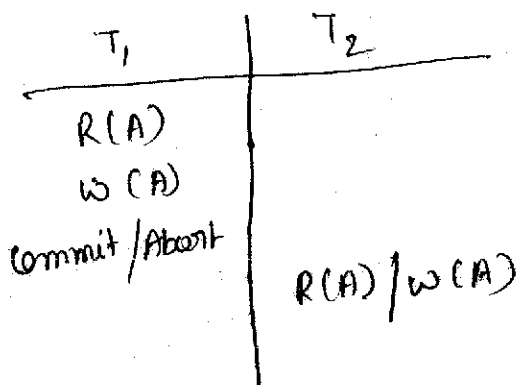 T1 T2
R(A)
W(A)
Commit/Abort
R(A)/W(A)